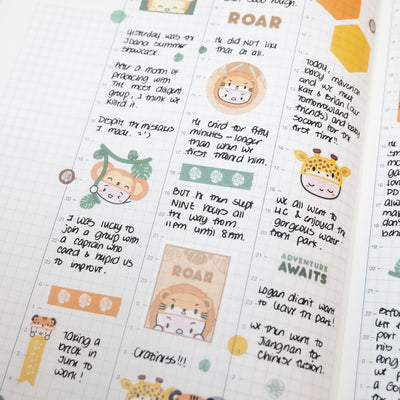 Yesterday was the
Joana summer
showcase.
After a month of
practicing with
the most diligent
group, I think we
killed it.
Despite the mistakes
I made. :')
I was lucky to
join a group with
a captain who
cared & helped us
to improve.
Taking a
break in
June to
work!
rough.
ROAR
He did NOT like
that at all.
He cried for fifty
minutes - longer
than when we
first trained him.
BUT he then slept
NINE hours all
the way from
11pm until 8am.
ROAR
Craziness!!!
Today,
baby maverick
and we met
Kate & Brian (our
Tomorrowland
friends) and baby
Socorro for the
first time!!
We all went to
& enjoyed the
gorgeous water
front park.
ADVENTURE
AWAITS
Logan didn't want
to leave the park!
We then went to
Jiangnan for
Chinese fusion.